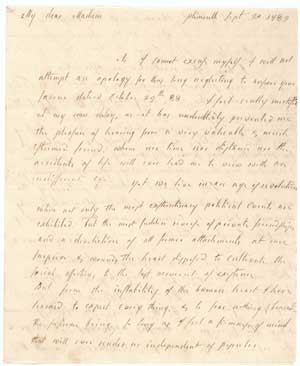 My dear Madam Plimouth Sept. 20. 1789
As I cannot excuse myself I will not
attempt an apology for thus long neglecting to answer your
favour dated October 29th 88 I feel really mortified
at my own delay, as it has undoubtedly prevented me
the pleasure of hearing from a very valuable & much
esteemed friend. whom nor time nor distance nor the
accidents of life will ever lead me to view with an
indifferent eye. yet we live in an age of revolution
when not only the most extraordinary political events are
exhibited but the most sudden of private friendships
and a dereliction of all former attachments at once
surprise & wounds the heart disposed to cultivate the
social affection to the last moment of existence
But from the instability of the human heart I have
learned to expect every thing & to fear nothing
the supreme being, so long as I feel a firmness of mind
that will ever render me independent of popular